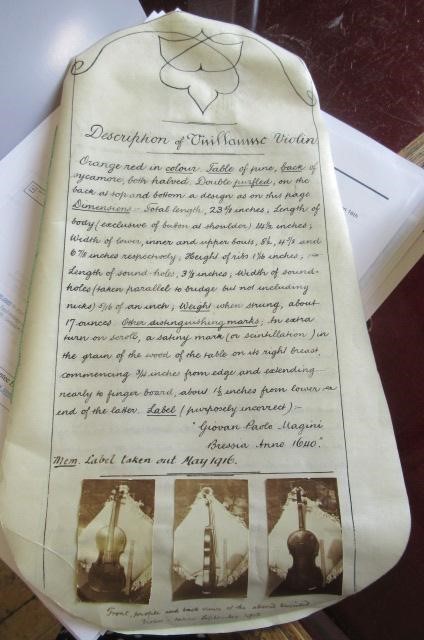 Description of Vuillaume Violin
Orange red in colour. Table of pine, back of
sycamore, both halved. Double purfled, on the
back at top and bottom a design as on this page
Dimensions:- Total length, 23 inches, Length of
body (exclusive of button at shoulder) 14½ inches;
Width of lower, inner and upper bouts, and
6 inches respectively; Height of ribs inches;-
Length of sound-holes, 3 inches; Width of sound-
holes (taken parallel to bridge but not including
nicks) 5/16 of an inch; Weight when strung, about
17 ounces. Other distinguishing marks; An extra
turn on scroll, a satiny mark (or scintillation) in
the grain of the wood of the table on its right breast,
commencing ¾ inches from edge and extending
nearly to finger board, about 1½ inches from lower
end of the latter. Label (purposely incorrect):-
"Giovan Paolo Magini
Bressia Anno 1640."
Mem. Label taken out May 1916.
Front, profile and back views of the above
Violin taken September